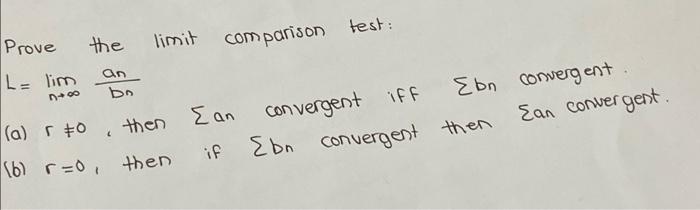 Prove the limit comparison test:
L = lim n→∞ an/bn
(a) r ≠0 , then Σan convergent iff Σbn convergent.
(b) r =0, then if Σbn convergent then Σan convergent.